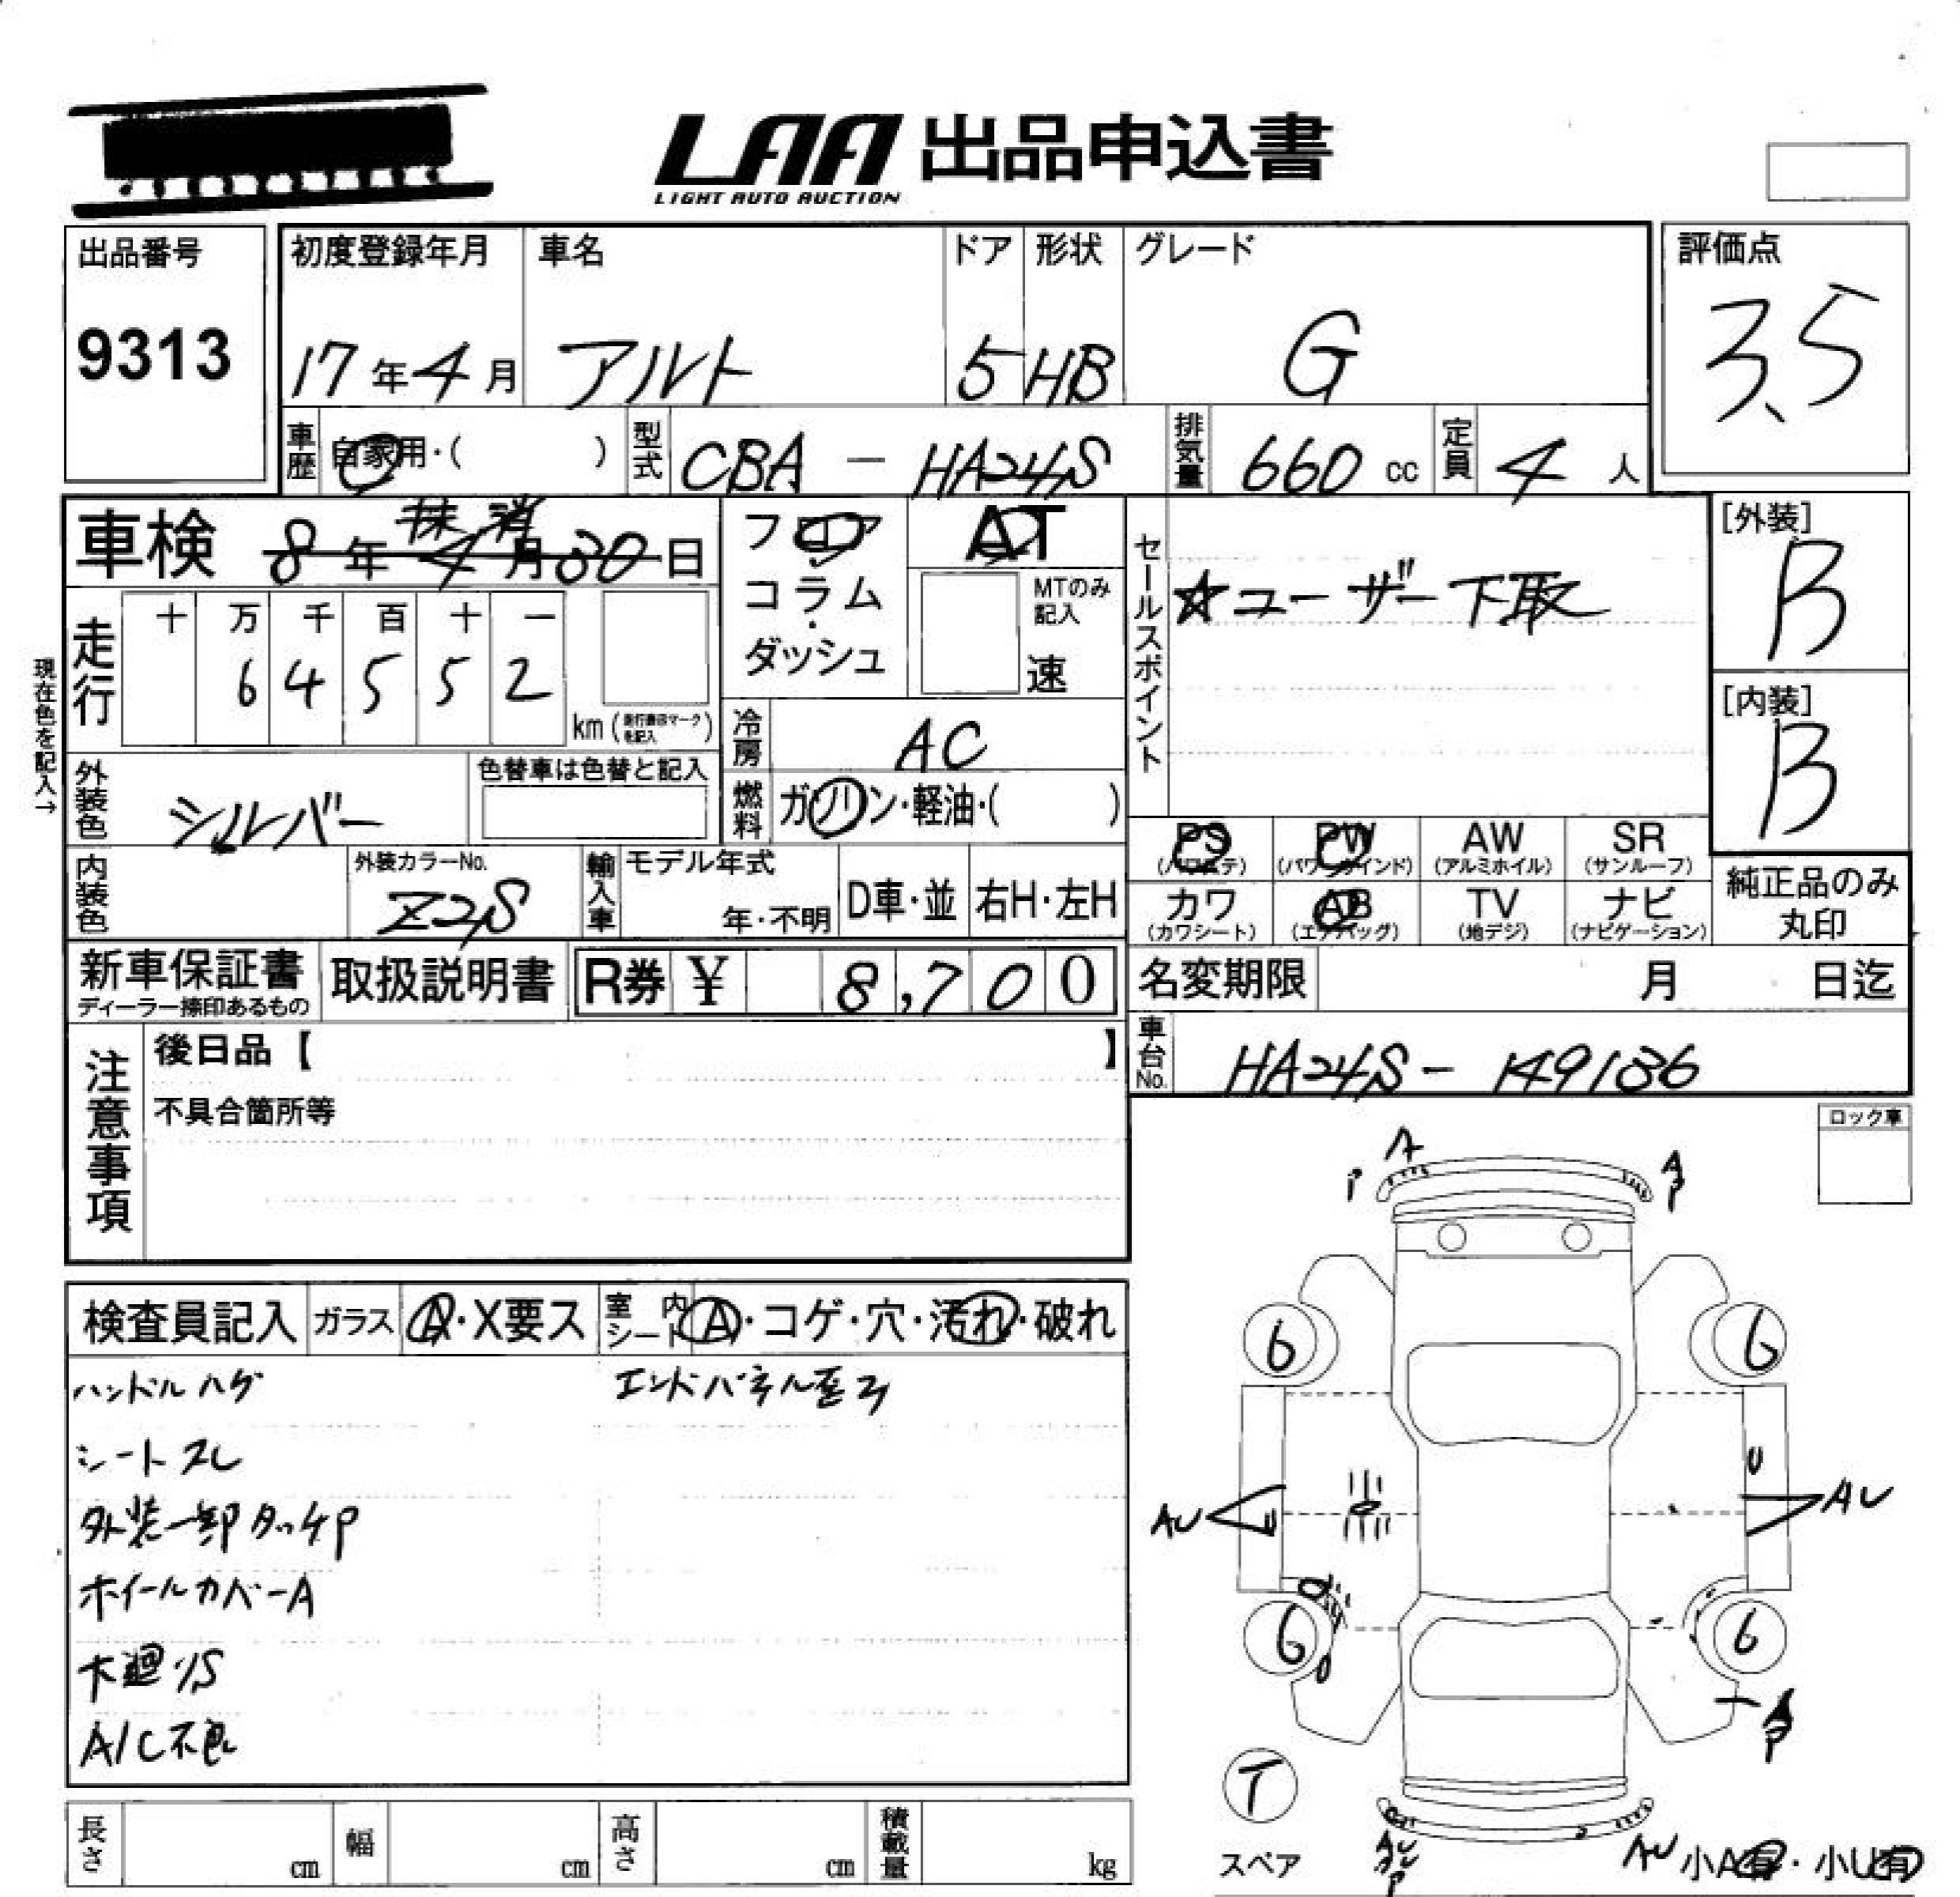 LAA 出品申込書
LIGHT AUTO AUCTION
出品番号
9313
初度登録年月
17年4月
車名
アルト
ドア
5
形状
HB
グレード
G
評価点
3.5
車歴
自家用・( )
型式
CBA - HA24S
排気量
660 cc
定員
4 人
車検 8年4月30日
抹消
走行
十 万 千 百 十 一
6 4 5 5 2
km (走行表示マークを記入)
現在色を記入→
外装色
シルバー
色替車は色替と記入
内装色
外装カラーNo.
Z2S
輸入車
モデル年式
年・不明
D車・並
右H・左H
フロア・コラム・ダッシュ
AT
MTのみ記入
速
冷房
AC
燃料
ガソリン・軽油・( )
セールスポイント
☆ユーザー下取
[外装]
B
[内装]
B
PS (パワステ)
PW (パワーウインド)
AW (アルミホイル)
SR (サンルーフ)
カワ (カワシート)
AB (エアバッグ)
TV (地デジ)
ナビ (ナビゲーション)
純正品のみ丸印
新車保証書
ディーラー捺印あるもの
取扱説明書
R券 ¥ 8,700
名変期限 月 日迄
車台No.
HA24S-149186
注意事項
後日品【 】
不具合箇所等
ロック車
検査員記入
ガラス
A・X要ス
室内シート
A・コゲ・穴・汚れ・破れ
ハンドルハゲ
エンドパネル歪ミ
シートスレ
外装一部タッチP
ホイールカバーA
下廻りS
A/C不良
A
P
A
P
6
6
AU
U
AU
6
6
A
P
T
スペア
AU
P
AU
小A有・小U有
長さ cm
幅 cm
高さ cm
積載量 kg